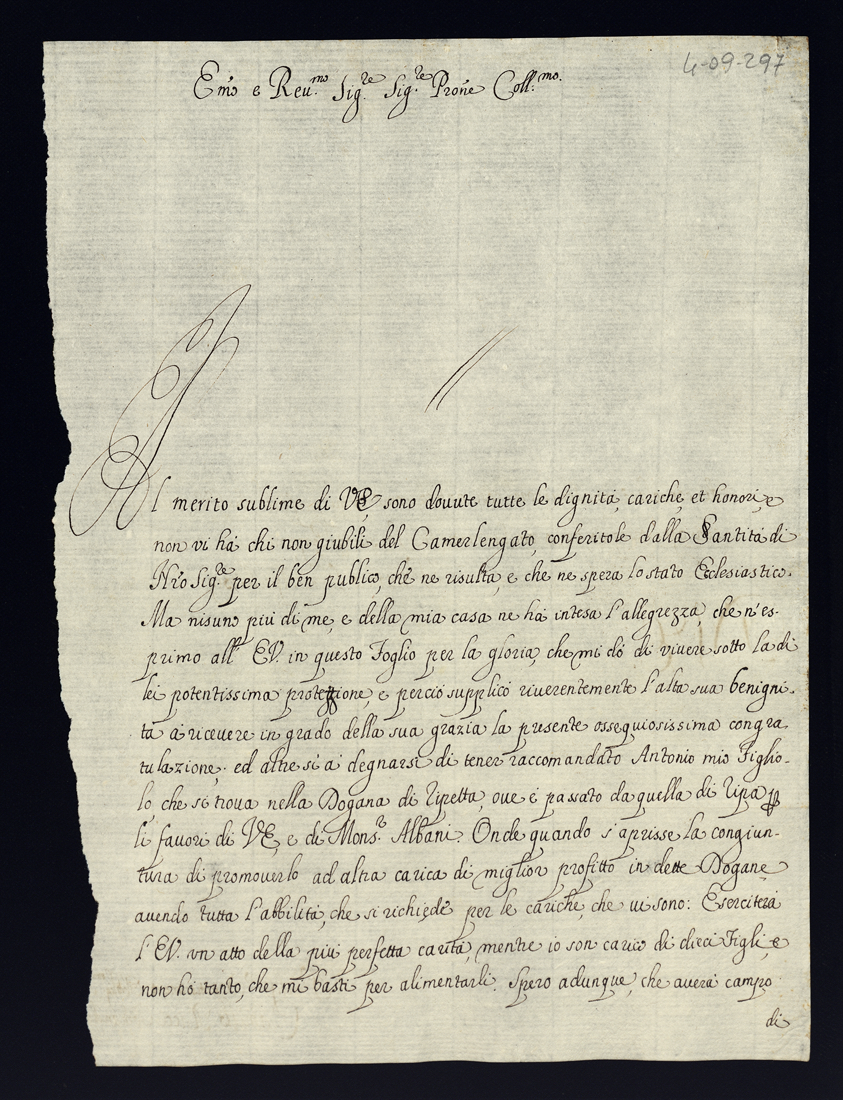 4-09-297
Emo e Reu.mo Sig.re Sig.re Prone Coll.mo.
Al merito sublime di VE, sono dovute tutte le dignità, cariche, et honori, e
non vi hà chi non giubili del Camerlengato, conferitole dalla Santità di
Nro Sig.re per il ben publico, che ne risulta, e che ne spera lo stato Ecclesiastico.
Ma nisuno più di me, e della mia casa ne hà intesa l'allegrezza, che n'es-
primo all' EV. in questo Foglio per la gloria, che mi dò di vivere sotto la di
lei potentissima protezzione, e perciò supplico riverentemente l'alta sua benigni-
tà à ricevere in grado della sua grazia la presente ossequiosissima congra-
tulazione, ed altresì à degnarsi di tener raccomandato Antonio mio Figlio-
lo, che si trova nella Dogana di Ripetta, ove è passato da quella di Ripa p
li favori di VE, e di Mons.r Albani. Onde quando s'aprisse la congiun-
tura di promoverlo ad altra carica di miglior profitto in dette Dogane,
avendo tutta l'abbilità, che si richiede per le cariche, che vi sono: Eserciterà
l'EV. un atto della più perfetta carità, mentre io son carico di dieci Figli, e
non hò tanto, che mi basti per alimentarli. Spero adunque, che averà campo
di